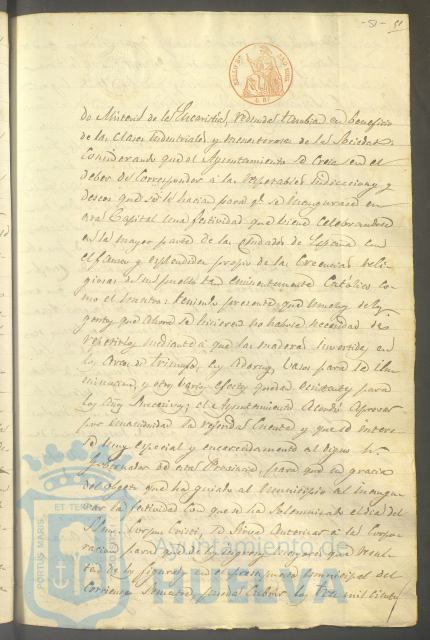 51
do Misterio de la Eucaristia, redunda tambien en beneficio
de las clases industriales y menesterosas de la Sociedad.
Considerando que el Ayuntamiento se cree en el
deber de corresponder á las respetables indicaciones y
deseos que se le hacian para qe. se inaugurase en
esta Capital una festividad que viene celebrandose
en la mayor parte de las ciudades de España con
el fausto y esplendidez propio de las Creencias Reli-
giosas de un pueblo tan eminentemente Católico co-
mo el nuestro: teniendo presente que muchos de los
gastos que ahora se hicieron no habrá necesidad de
repetirlos mediante á que las maderas invertidas en
los Arcos de triunfo, los adornos, vasos para la ilu-
minacion, y otros varios efectos quedan existentes para
los años sucesivos; el Ayuntamiento Acordó Aprovar
por unanimidad la referida Cuenta y que se intere-
se muy especial y encarecidamente al digno Sr.
Gobernador de esta Provincia, para que en gracia
del objeto que ha guiado al Municipio al inaugu-
rar la festividad con que se ha solemnizado el dia del
Corpus Cristi, se sirva Autorizar á la Corpo-
racion para que
figura en el presupuesto municipal del
corriente semestre, pueda cubrir los tres mil ciento
PORTUS MARIS
ET TERRÆ
Ayuntamiento de
HUELVA